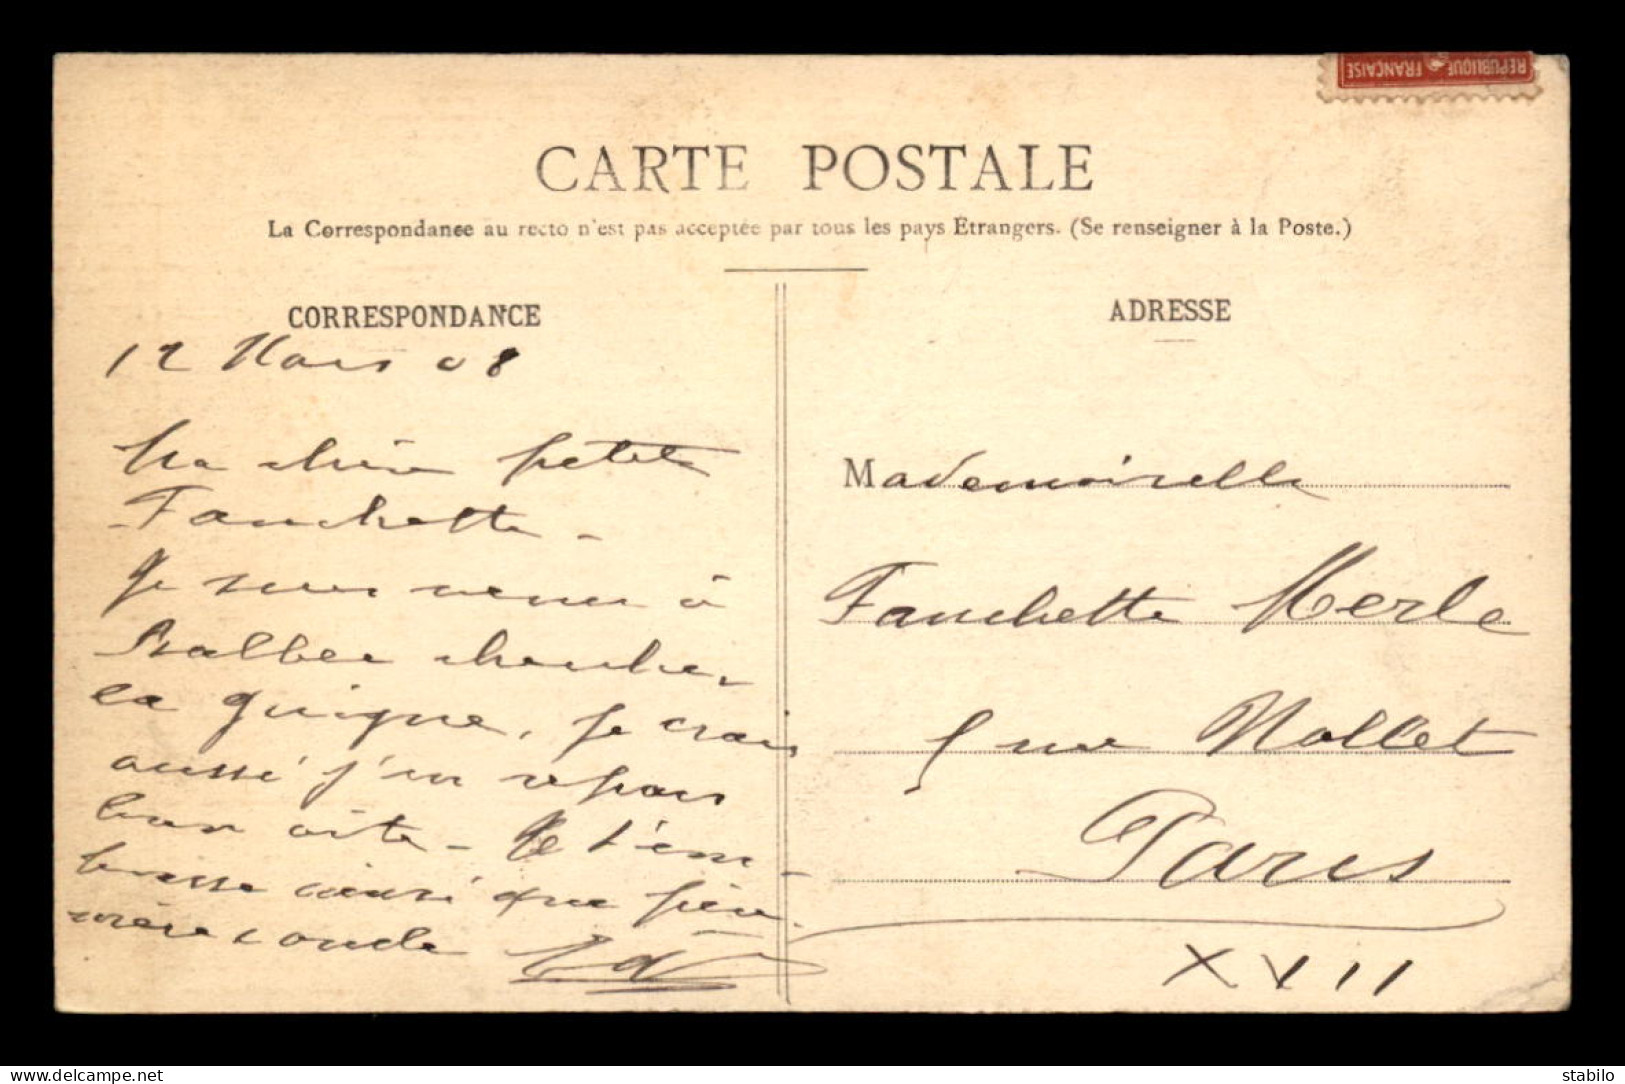 REPUBLIQUE FRANÇAISE
CARTE POSTALE
La Correspondance au recto n'est pas acceptée par tous les pays Etrangers. (Se renseigner à la Poste.)
CORRESPONDANCE
12 Mars 08
Ma chère petite
Fanchette -
Je suis venu à
chercher
la guigne, je crois
aussi j'en repars
bien vite - Je t'em-
brasse ainsi que père
mère oncle
ADRESSE
Mademoiselle
Fanchette Merle
5 rue Mollet
Paris
XVII
delcampe.net
stabilo